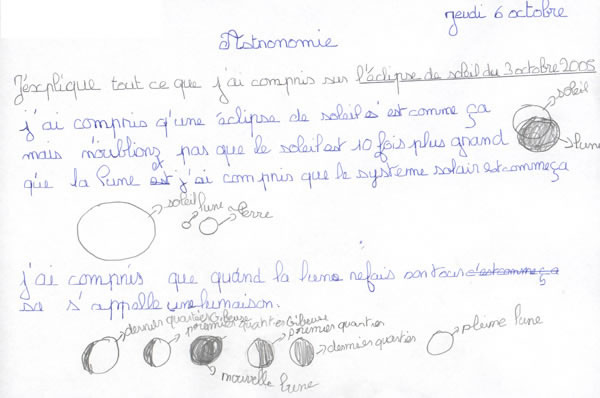 Jeudi 6 octobre
Astronomie
J'éxplique tout ce que j'ai compris sur l'éclipse de soleil du 3 octobre 2005
j'ai compris q'une éclipse de soleil s'est comme ça
soleil
lune
mais n'oublionz pas que le soleil est 10 fois plus grand
que la lune et j'ai compris que le systeme solair est comme ça
soleil lune terre
j'ai compris que quand la lune refais son tour c'est comme ça
sa s'appelle une lunaison.
dernier quartier Gibeuse premier quartier Gibeuse premier quartier
dernier quartier
pleine lune
nouvelle lune